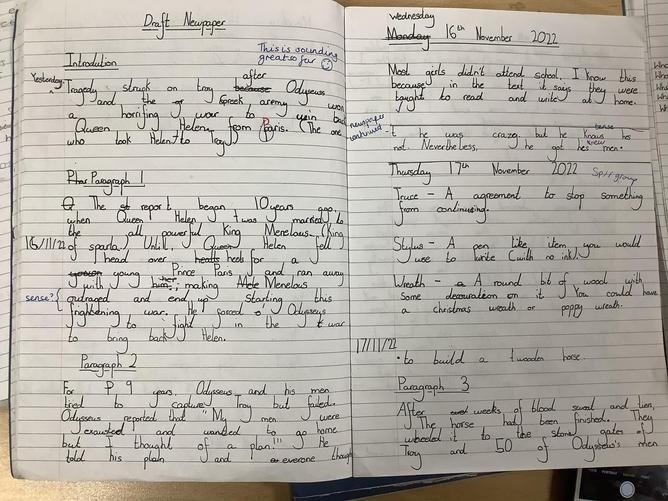 Draft Newspaper
Introdution
This is sounding
great so far
Yesterday
after
Tragedy struck on troy because Odyseus
and the greek army won
a horrifing war to win back
Queen Helen from Paris. (The one
who took Helen to Troy)
Paragraph 1
The report began 10 years ago,
when Queen Helen was married to
the all powerful King Menelous. (King
16/11/22
of sparta) Until, Queen Helen fell
head over heels for a
young Prince Paris and ran away
with him; making Menelous
sense?
outraged and end up starting this
frightening war. He forced Odyseus
to fight in the war
to bring back Helen.
Paragraph 2
For 9 years, Odyseus and his men
tried to capture Troy but failed.
Odyseus reported that "My men were
exausted and wanted to go home
but I thought of a plan!!" He
told his plain and everone though
Wednesday
Monday 16th November 2022
Most girls didn't attend school. I know this
because in the text it says they were
taught to read and write at home.
newspaper
continued
t he was crazy but he knows his
tense
knew
not. Nevertheless, he got his men.
Thursday 17th November 2022
Truce - A agreement to stop something
from continuing.
Stylus - A pen like item you would
use to write (with no ink).
Wreath - A round bit of wood with
some decoration on it. You could have
a christmas wreath or poppy wreath.
17/11/22
• to build a wooden horse.
Paragraph 3
After weeks of blood sweat and
The horse had been finished. They
wheeled it to the stone gates of
Troy and 50 of Odysseus's men